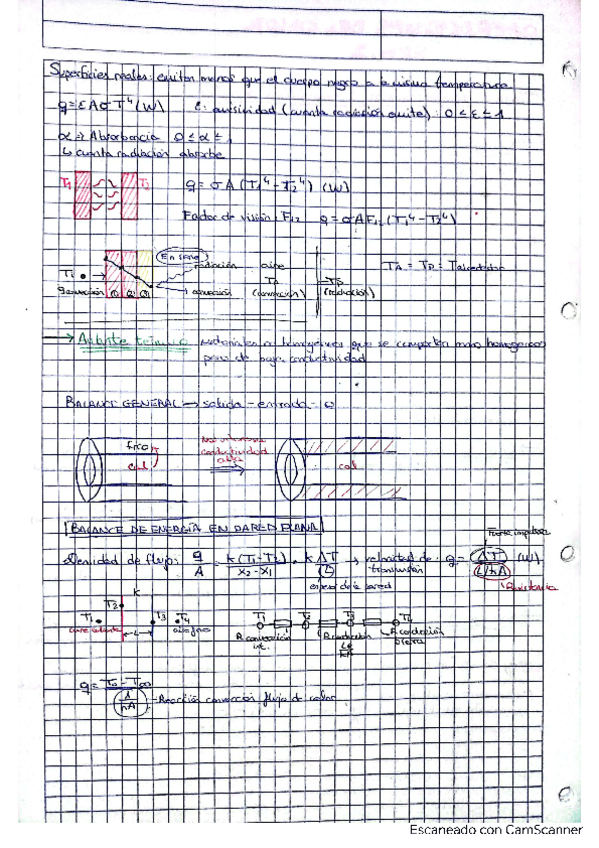 Superficies reales: emiten menos que el cuerpo negro a la misma temperatura
q = εAσT⁴ (W)   ε: emisividad (cuanta radiación emite) : 0 ≤ ε ≤ 1
α => Absorbancia 0 ≤ α ≤ 1
↳ cuanta radiación absorbe
T1 T2 q = σA(T1⁴ - T2⁴) (W)
Factor de visión: F12 q = σAF12(T1⁴ - T2⁴)
En serie
radiación aire
T1 convección ① ② ③ convección TA (convección) TB (radiación)
TA = TB = Talrededor
→ Aislante térmico
materiales no homogéneos que se comportan como homogéneos
para de baja conductividad
BALANCE GENERAL → salida - entrada = 0
frío
cal
conductividad
cal
BALANCE DE ENERGÍA EN PARED PLANA
Fuerza impulsora
Densidad de flujo: q/A = k(T1-T2)/(x2-x1) = k ΔT/L → velocidad de transmisión q = ΔT/(L/kA) (W)
espesor de la pared
Resistencia
k
T1 T2 T3 T4
aire caliente L aire frío
T1 T2 T3 T4
R convección int. R conducción L/kA R
q = (T0 - T∞)/(1/hA) convección flujo de calor
Escaneado con CamScanner